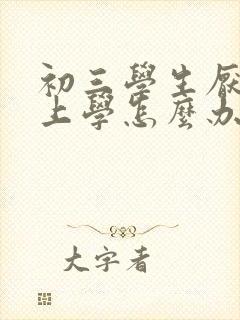 初三學生厭
上學怎麼办
大字者